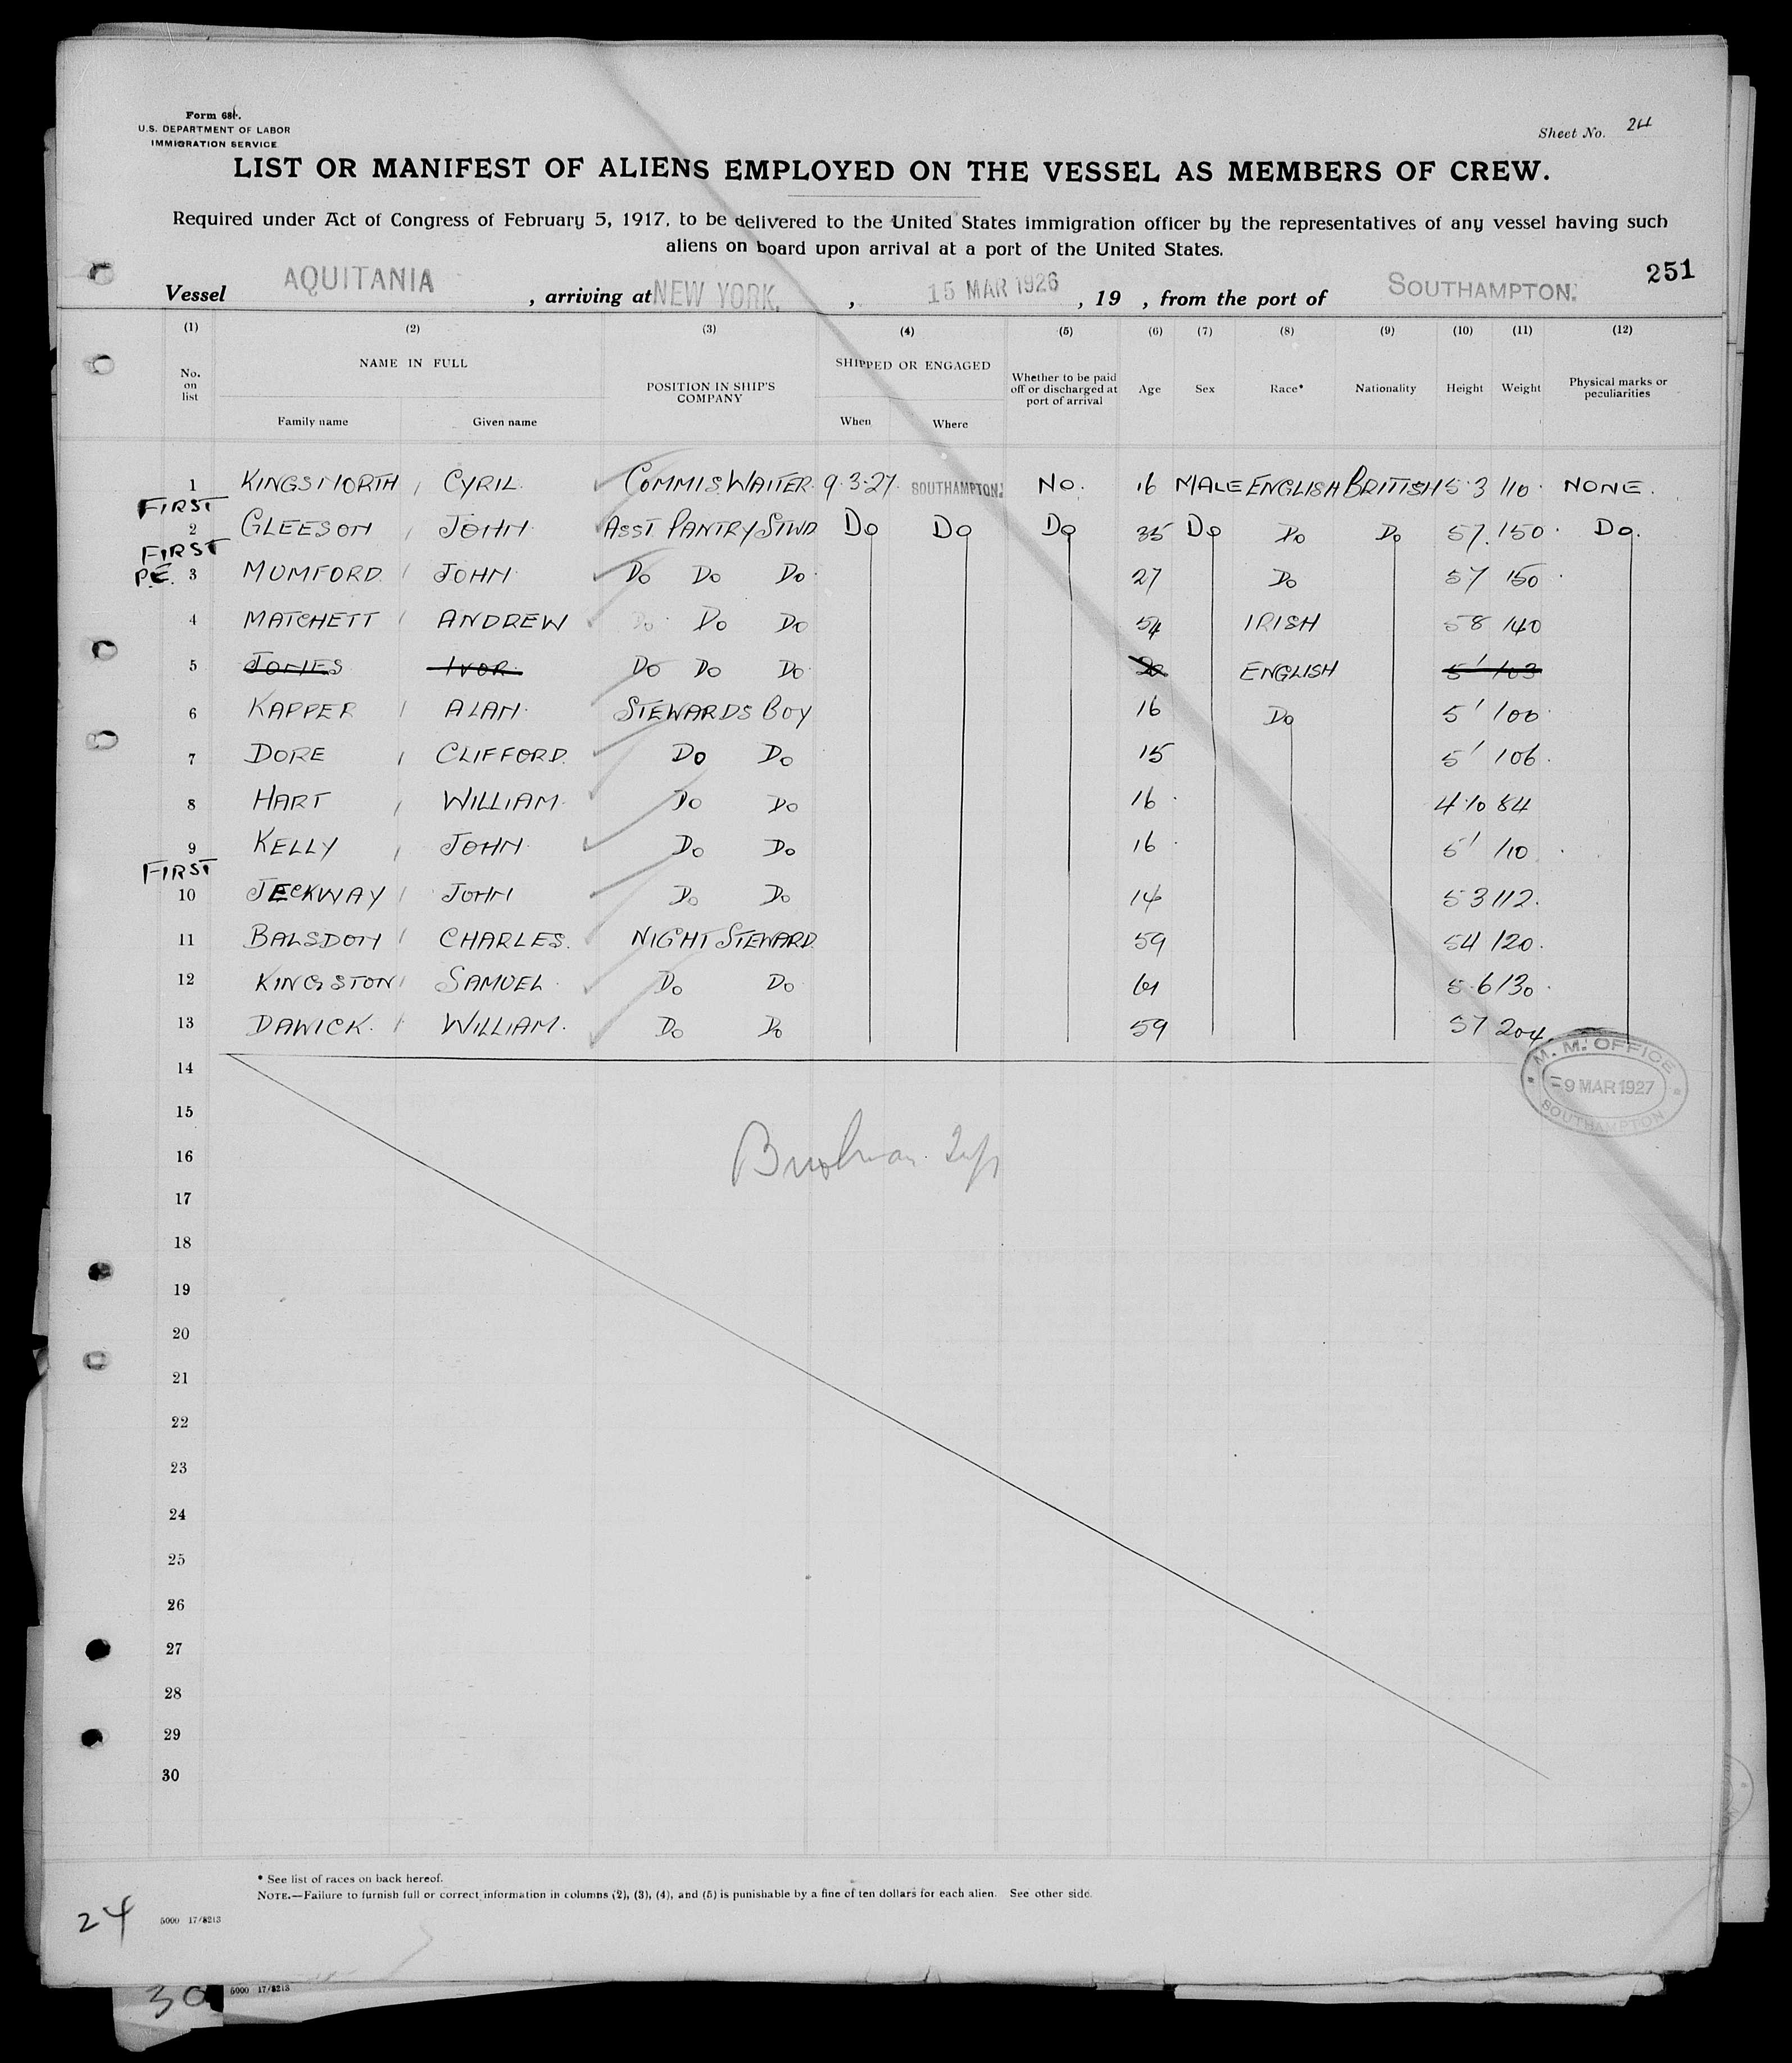 Form 686.
U.S. DEPARTMENT OF LABOR
IMMIGRATION SERVICE
Sheet No. 24
LIST OR MANIFEST OF ALIENS EMPLOYED ON THE VESSEL AS MEMBERS OF CREW.
Required under Act of Congress of February 5, 1917, to be delivered to the United States immigration officer by the representatives of any vessel having such
aliens on board upon arrival at a port of the United States.
251
Vessel AQUITANIA, arriving at NEW YORK, , 15 MAR 1926, 19 , from the port of SOUTHAMPTON.
(1) (2) (3) (4) (5) (6) (7) (8) (9) (10) (11) (12)
No. on list NAME IN FULL Family name Given name POSITION IN SHIP'S COMPANY SHIPPED OR ENGAGED When Where Whether to be paid off or discharged at port of arrival Age Sex Race* Nationality Height Weight Physical marks or peculiarities
1 KINGSNORTH, CYRIL. COMMIS. WAITER. 9.3.27. SOUTHAMPTON. NO. 16 MALE ENGLISH BRITISH 5.3 110. NONE.
FIRST
2 GLEESON, JOHN. ASST PANTRY STWD Do Do Do 35 Do Do Do 57. 150. Do.
FIRST
P.E. 3 MUMFORD. JOHN. Do Do Do. 27 Do 57 150.
4 MATCHETT ANDREW Do. Do Do 54 IRISH 58 140
5 JONES IVOR. Do Do Do. ENGLISH 5' 103
6 KAPPER ALAN. STEWARDS BOY 16 Do 5' 100
7 DORE, CLIFFORD. Do Do 15 5' 106.
8 HART, WILLIAM. Do Do 16. 4.10 84
9 KELLY, JOHN. Do Do 16. 5' 110.
FIRST
10 JECKWAY JOHN Do Do 14 53 112.
11 BALSDON CHARLES. NIGHT STEWARD. 59 54 120.
12 KINGSTON SAMUEL. Do Do. 61 5.6 130.
13 DAWICK. WILLIAM. Do Do 59 57 204.
M. M. OFFICE
-9 MAR 1927
SOUTHAMPTON
14
15
16
17
18
19
20
21
22
23
24
25
26
27
28
29
30
* See list of races on back hereof.
NOTE.—Failure to furnish full or correct information in columns (2), (3), (4), and (5) is punishable by a fine of ten dollars for each alien. See other side.
24 5000 17/8213
30 5000 17/8213